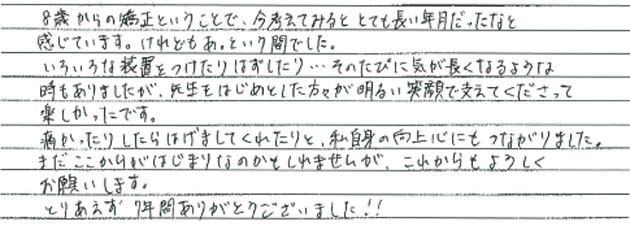 8歳からの矯正ということで、今考えてみると とても長い年月だったなと
感じています。けれどもあっという間でした。
いろいろな装置をつけたりはずしたり…そのたびに気が長くなるような
時もありましたが、先生をはじめとした方々が明るい笑顔で支えてくださって
楽しかったです。
痛かったりしたらはげましてくれたりと、私自身の向上心にもつながりました。
まだここからがはじまりなのかもしれませんが、これからもよろしく
お願いします。
とりあえず 7年間ありがとうございました!!